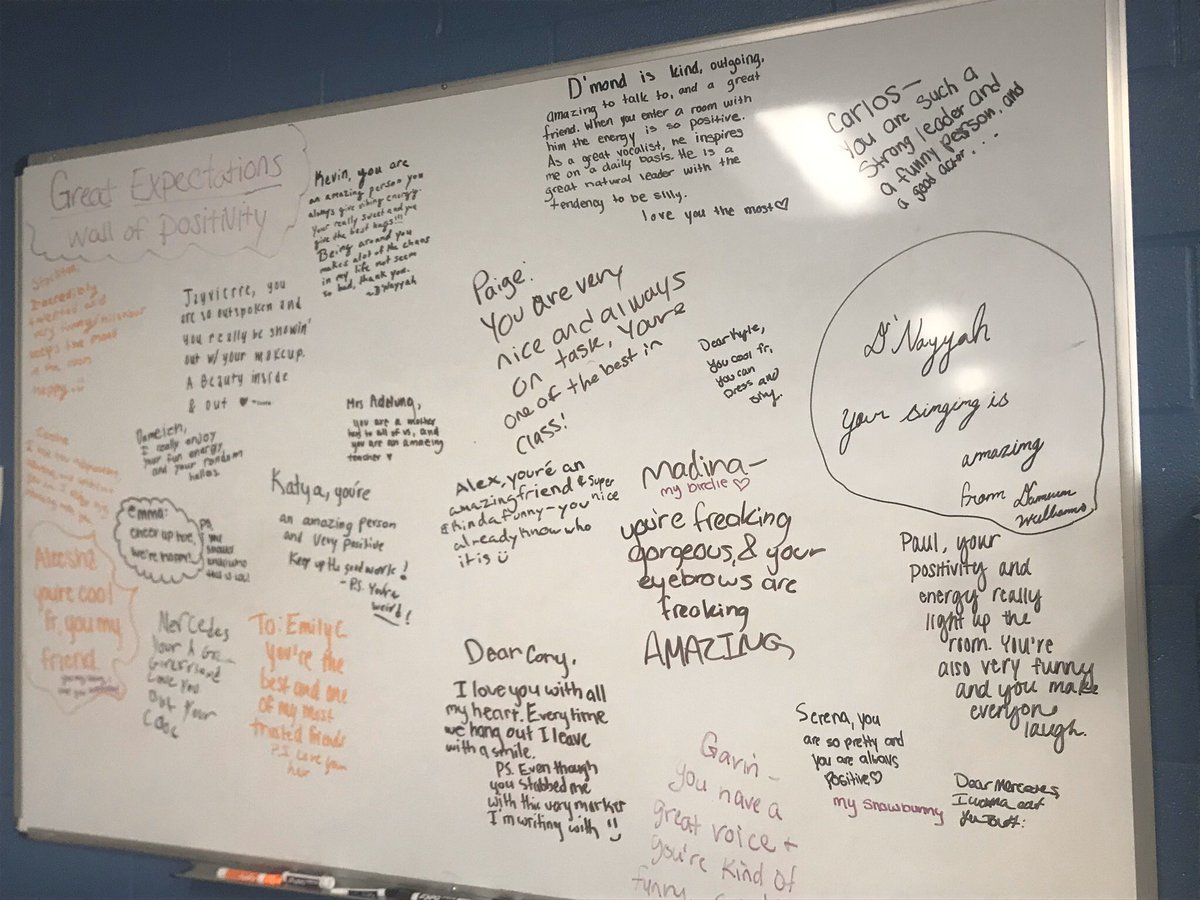 Great Expectations
Wall of Positivity
Kevin, you are
an amazing person you
always give vibing energy.
Your really sweet and you
give the best hugs!!!
Being around you
makes alot of the chaos
in my life not seem
so bad, thank you.
~D'Nayyah
D'mond is kind, outgoing,
amazing to talk to, and a great
friend. When you enter a room with
him the energy is so positive.
As a great vocalist, he inspires
me on a daily basis. He is a
great natural leader with the
tendency to be silly.
love you the most♡
Carlos—
You are such a
Strong leader and
a funny person, and
a good actor...
Incredibly
talented and
very funny/hilarious
keeps the mood
in the room
happy
Jayvierre, you
are so outspoken and
you really be snowin'
out w/ your makeup.
A Beauty inside
& out ♥
Paige:
You are very
nice and always
on task, Youre
one of the best in
class!
Dear Kyle,
you cool fr,
you can
Dress and
D'Nayyah
Your singing is
amazing
from Dameion
Williams
Dameion,
I really enjoy
your fun energy,
and your random
hellos
Mrs Adelung,
you are a mother
to all of us, and
you are an amazing
teacher ♥
Katya, you're
an amazing person
and very positive
Keep up the good work!
- P.S. You're
weird!
Alex, you're an
amazing friend & super
& kinda funny - you nice
already know who
it is
Madina—
my birdie ♡
you're freaking
gorgeous, & your
eyebrows are
freaking
AMAZING,
emma:
cheer up hoe,
we're happy!
P.S.
you
should
know who
this is
Aleesha
you're cool
fr, you my
friend
Mercedes
Your A
Girlfriend
Love You
But Your
To: Emily C.
you're the
best and one
of my most
trusted friends
P.S. Love your
hair
Dear Cory,
I love you with all
my heart. Every time
we hang out I leave
with a smile.
PS. Even though
you stabbed me
with this very marker
I'm writing with :)
Paul, your
positivity and
energy really
light up the
room. You're
also very funny
and you make
everyone
laugh.
Serena, you
are so pretty and
you are always
positive♡
my snowbunny
Gavin-
you have a
great voice +
you're kind of
funny
Dear Mercedes,
I wanna eat